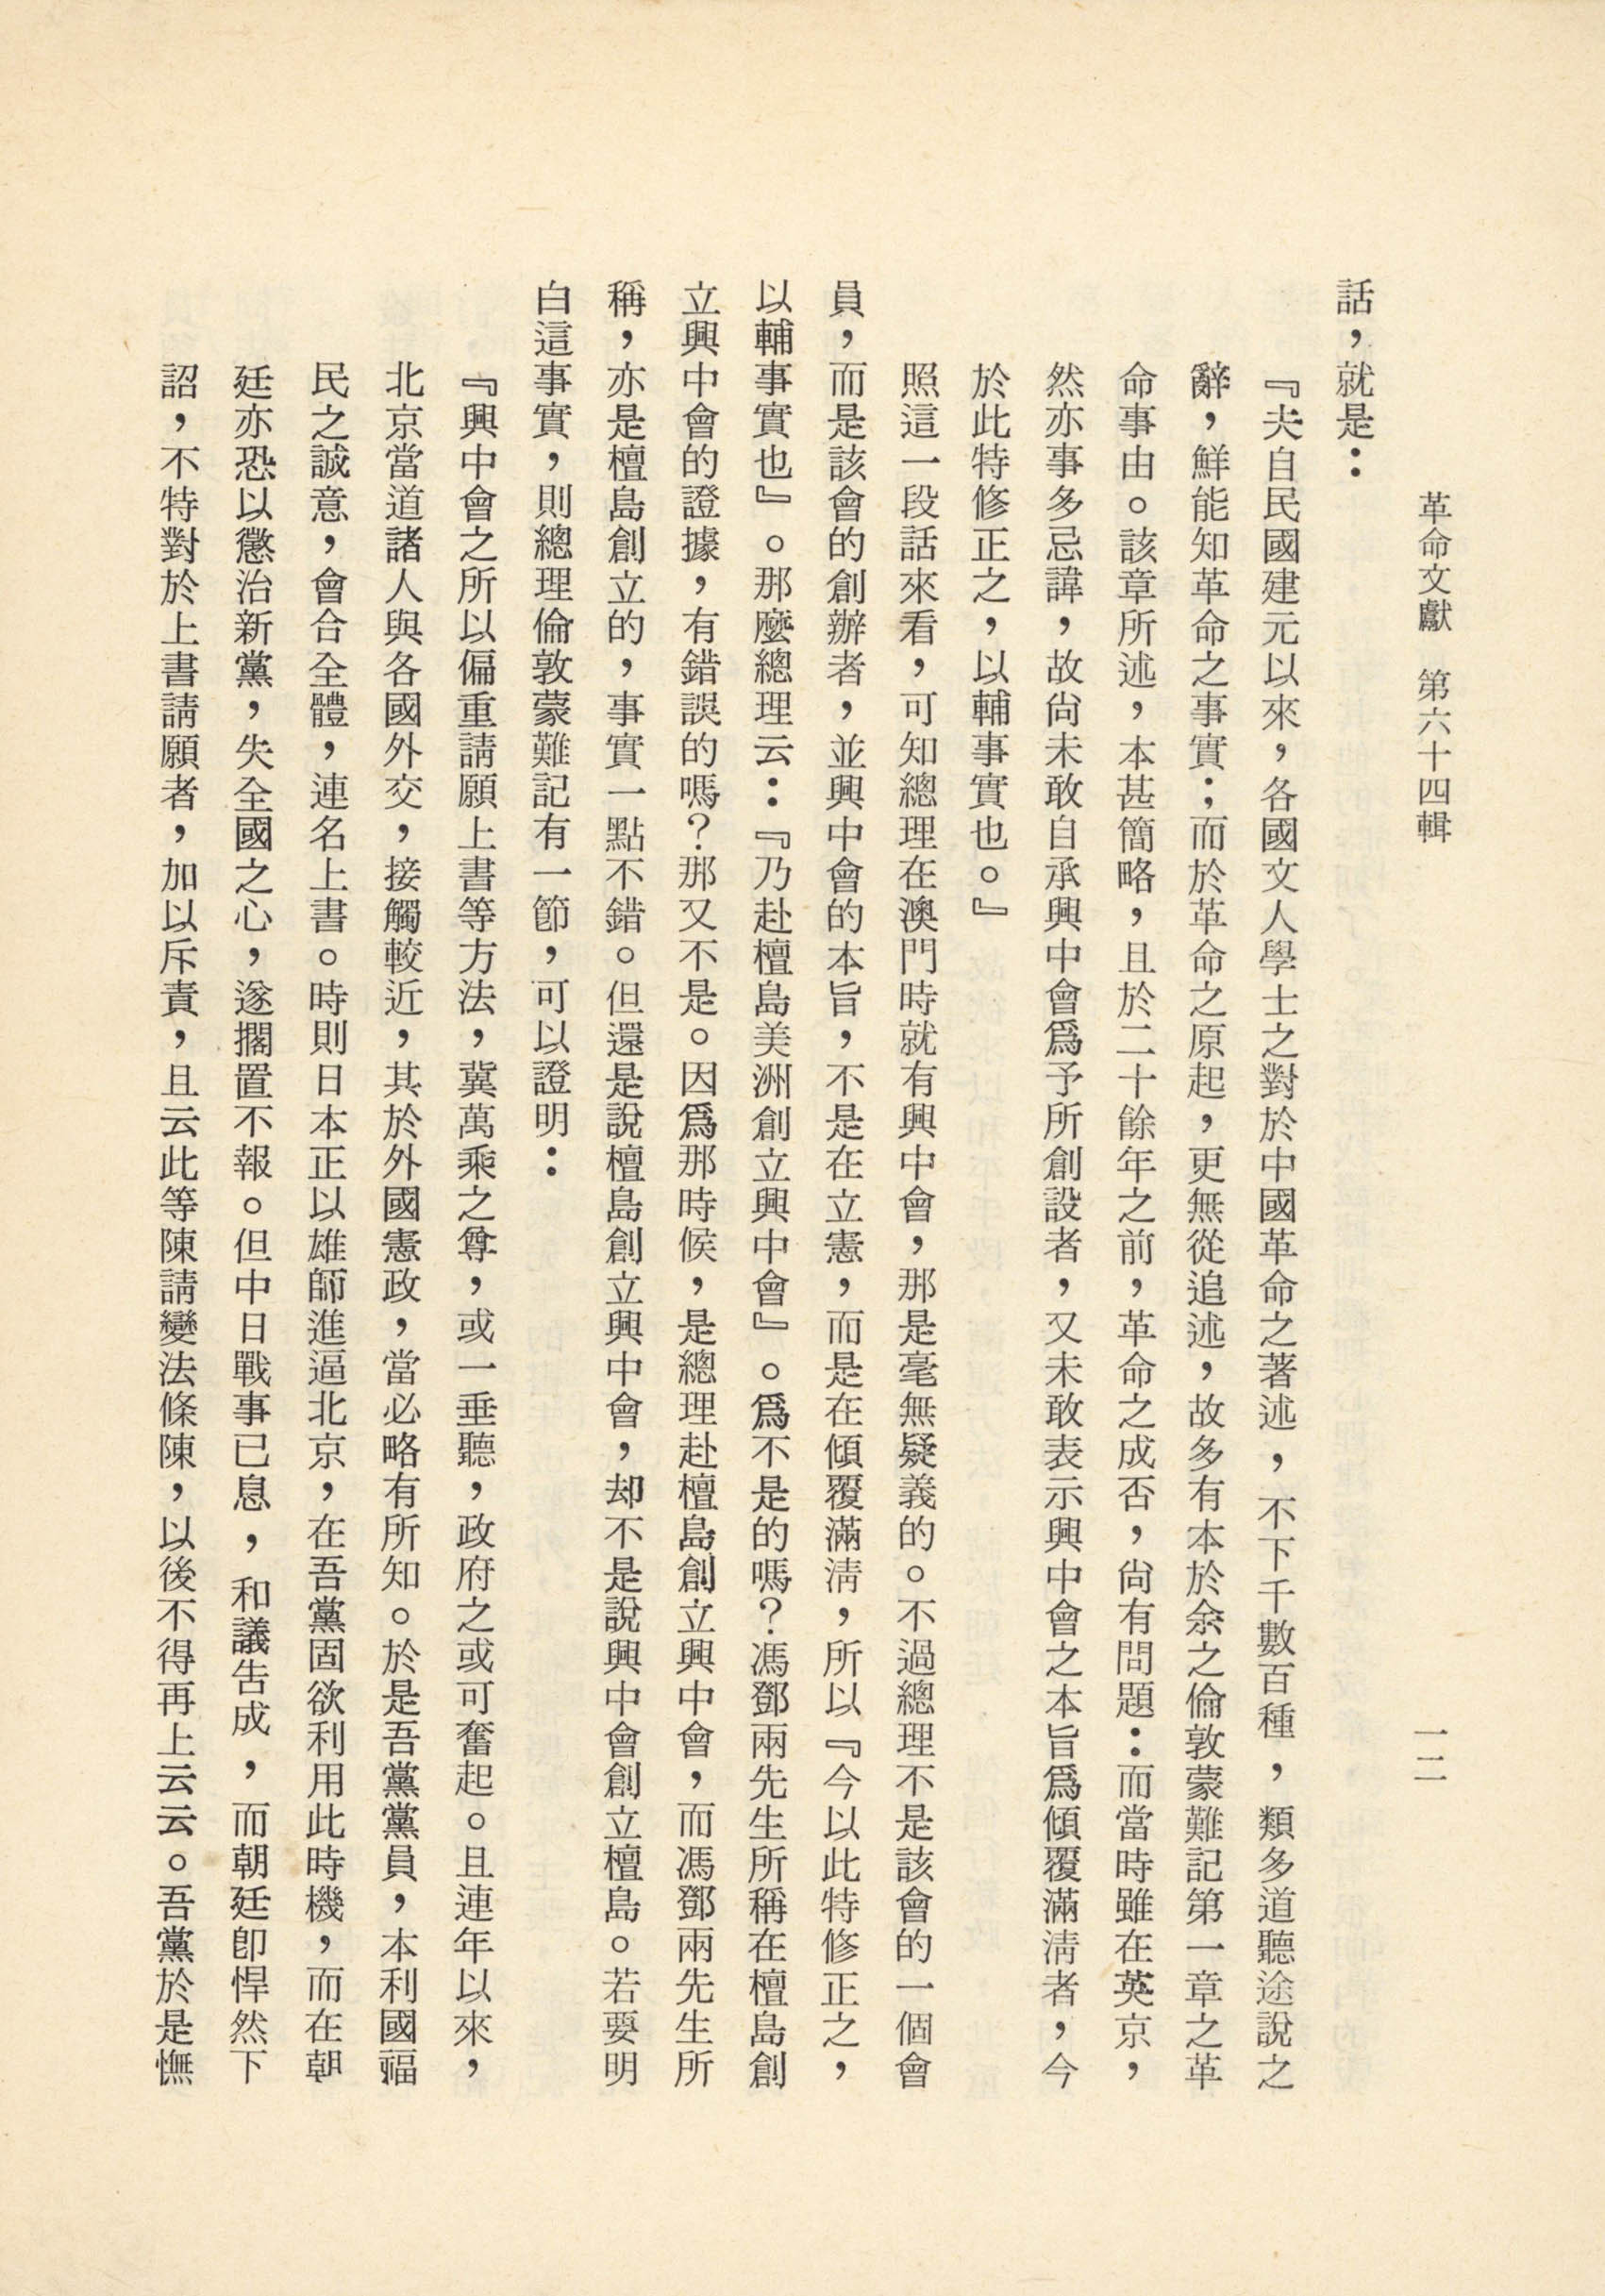 革命文獻　第六十四輯　一二
話，就是：
『夫自民國建元以來，各國文人學士之對於中國革命之著述，不下千數百種，類多道聽途說之
辭，鮮能知革命之事實；而於革命之原起，更無從追述，故多有本於余之倫敦蒙難記第一章之革
命事由。該章所述，本甚簡略，且於二十餘年之前，革命之成否，尚有問題：而當時雖在英京，
然亦事多忌諱，故尚未敢自承興中會爲予所創設者，又未敢表示興中會之本旨爲傾覆滿淸者，今
於此特修正之，以輔事實也。』
照這一段話來看，可知總理在澳門時就有興中會，那是毫無疑義的。不過總理不是該會的一個會
員，而是該會的創辦者，並興中會的本旨，不是在立憲，而是在傾覆滿淸，所以『今以此特修正之，
以輔事實也』。那麼總理云：『乃赴檀島美洲創立興中會』。爲不是的嗎？馮鄧兩先生所稱在檀島創
立興中會的證據，有錯誤的嗎？那又不是。因爲那時候，是總理赴檀島創立興中會，而馮鄧兩先生所
稱，亦是檀島創立的，事實一點不錯。但還是說檀島創立興中會，却不是說興中會創立檀島。若要明
白這事實，則總理倫敦蒙難記有一節，可以證明：
『興中會之所以偏重請願上書等方法，冀萬乘之尊，或一垂聽，政府之或可奮起。且連年以來，
北京當道諸人與各國外交，接觸較近，其於外國憲政，當必略有所知。於是吾黨黨員，本利國福
民之誠意，會合全體，連名上書。時則日本正以雄師進逼北京，在吾黨固欲利用此時機，而在朝
廷亦恐以懲治新黨，失全國之心，遂擱置不報。但中日戰事已息，和議告成，而朝廷卽悍然下
詔，不特對於上書請願者，加以斥責，且云此等陳請變法條陳，以後不得再上云云。吾黨於是憮